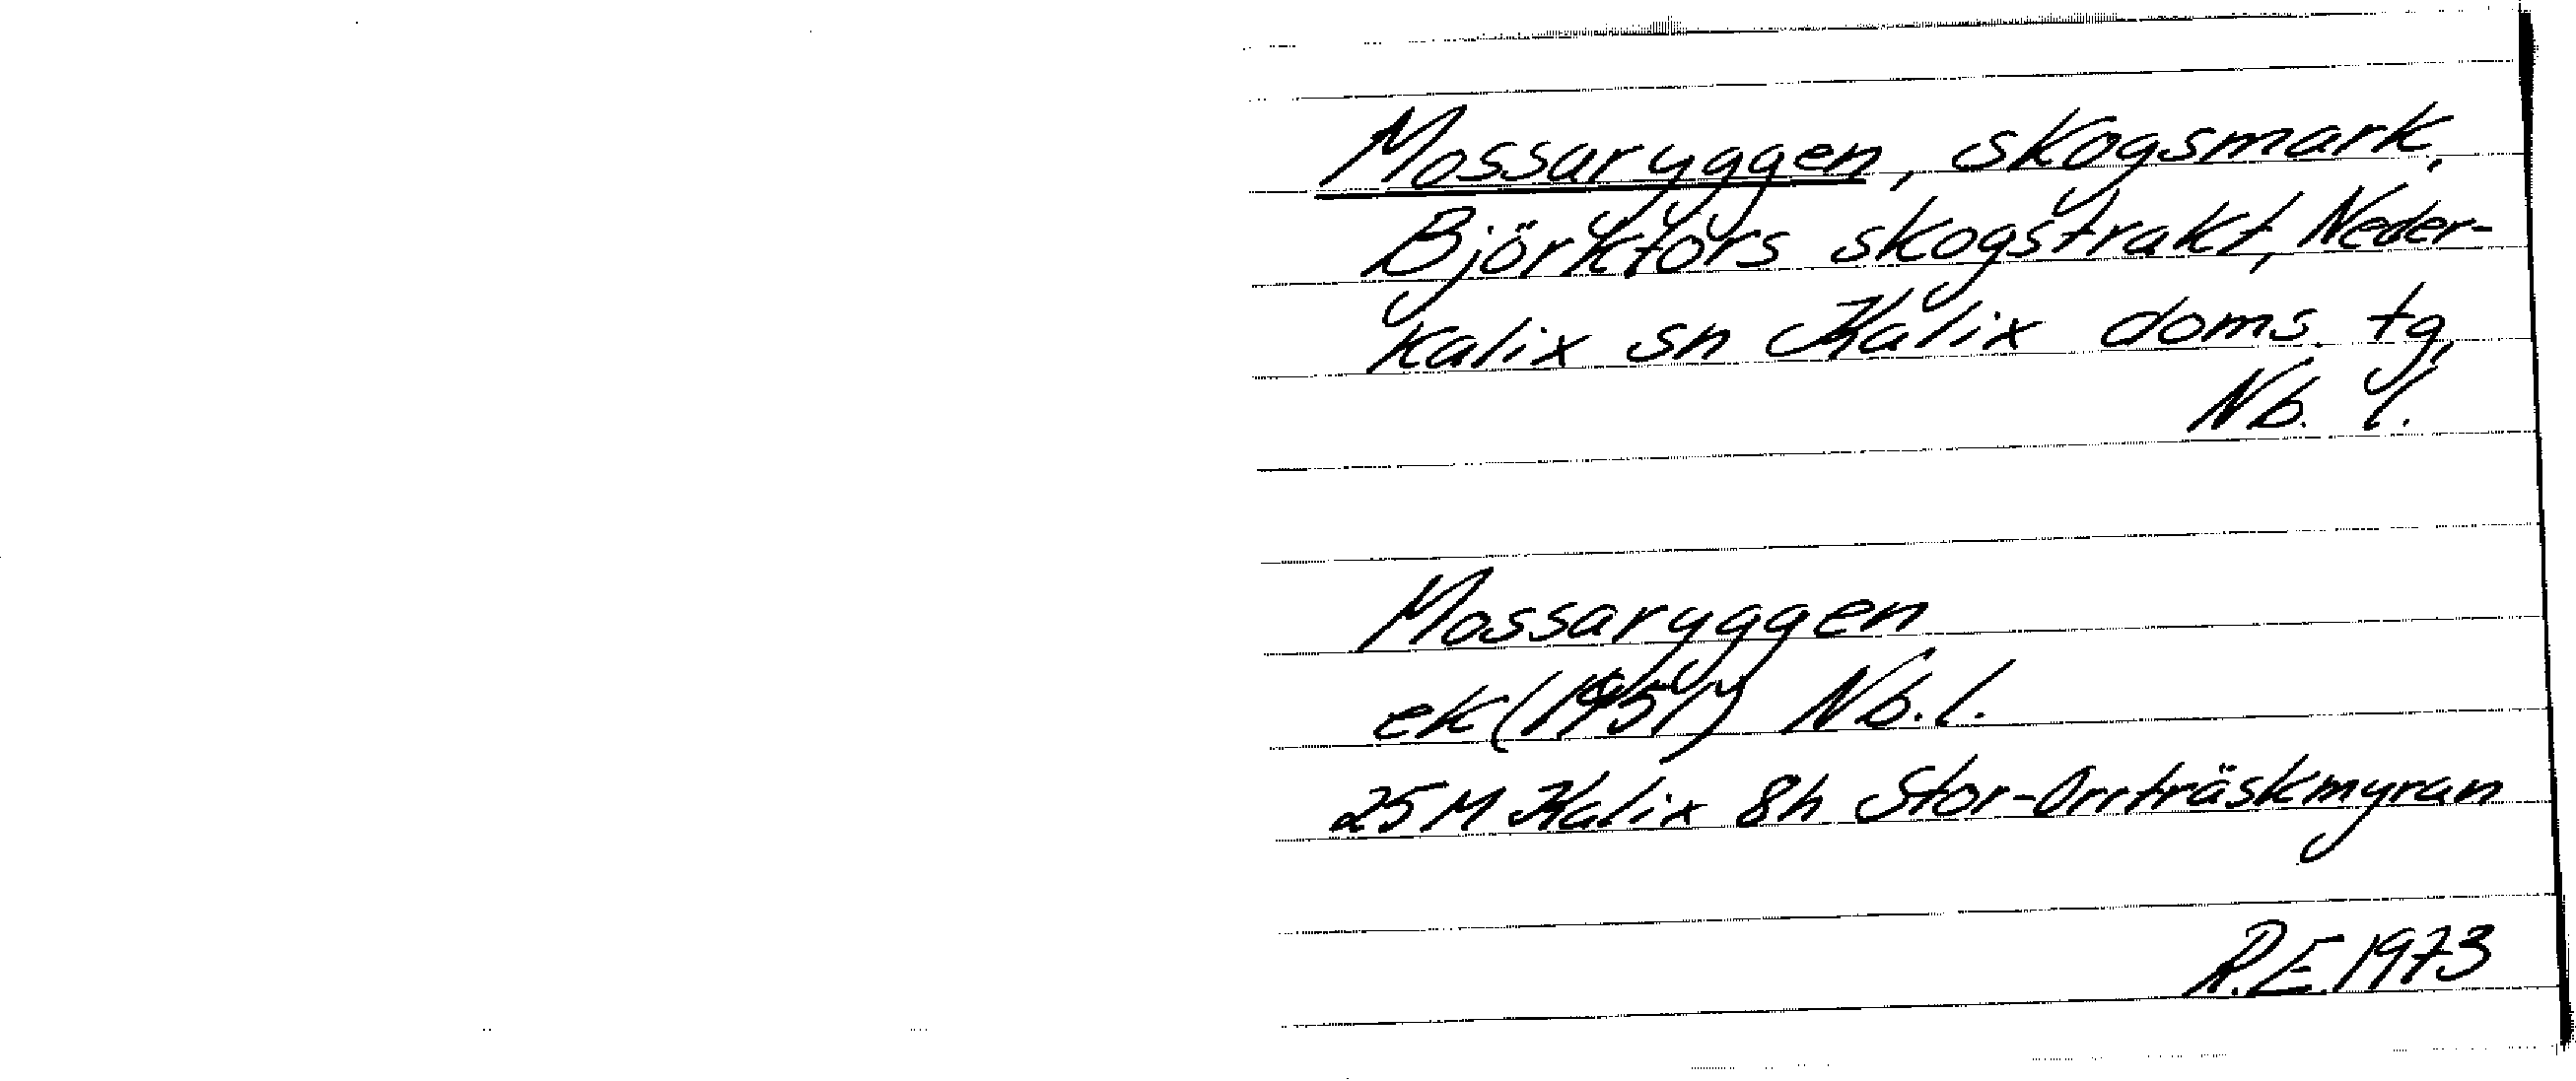 Mossaryggen, skogsmark,
Björkfors skogstrakt, Neder-
kalix sn Kalix doms. tg,
Nb. l.
Mossaryggen
ek (1951) Nb. l.
25 M Kalix 8h Stor-Orrträskmyran
R.E. 1973